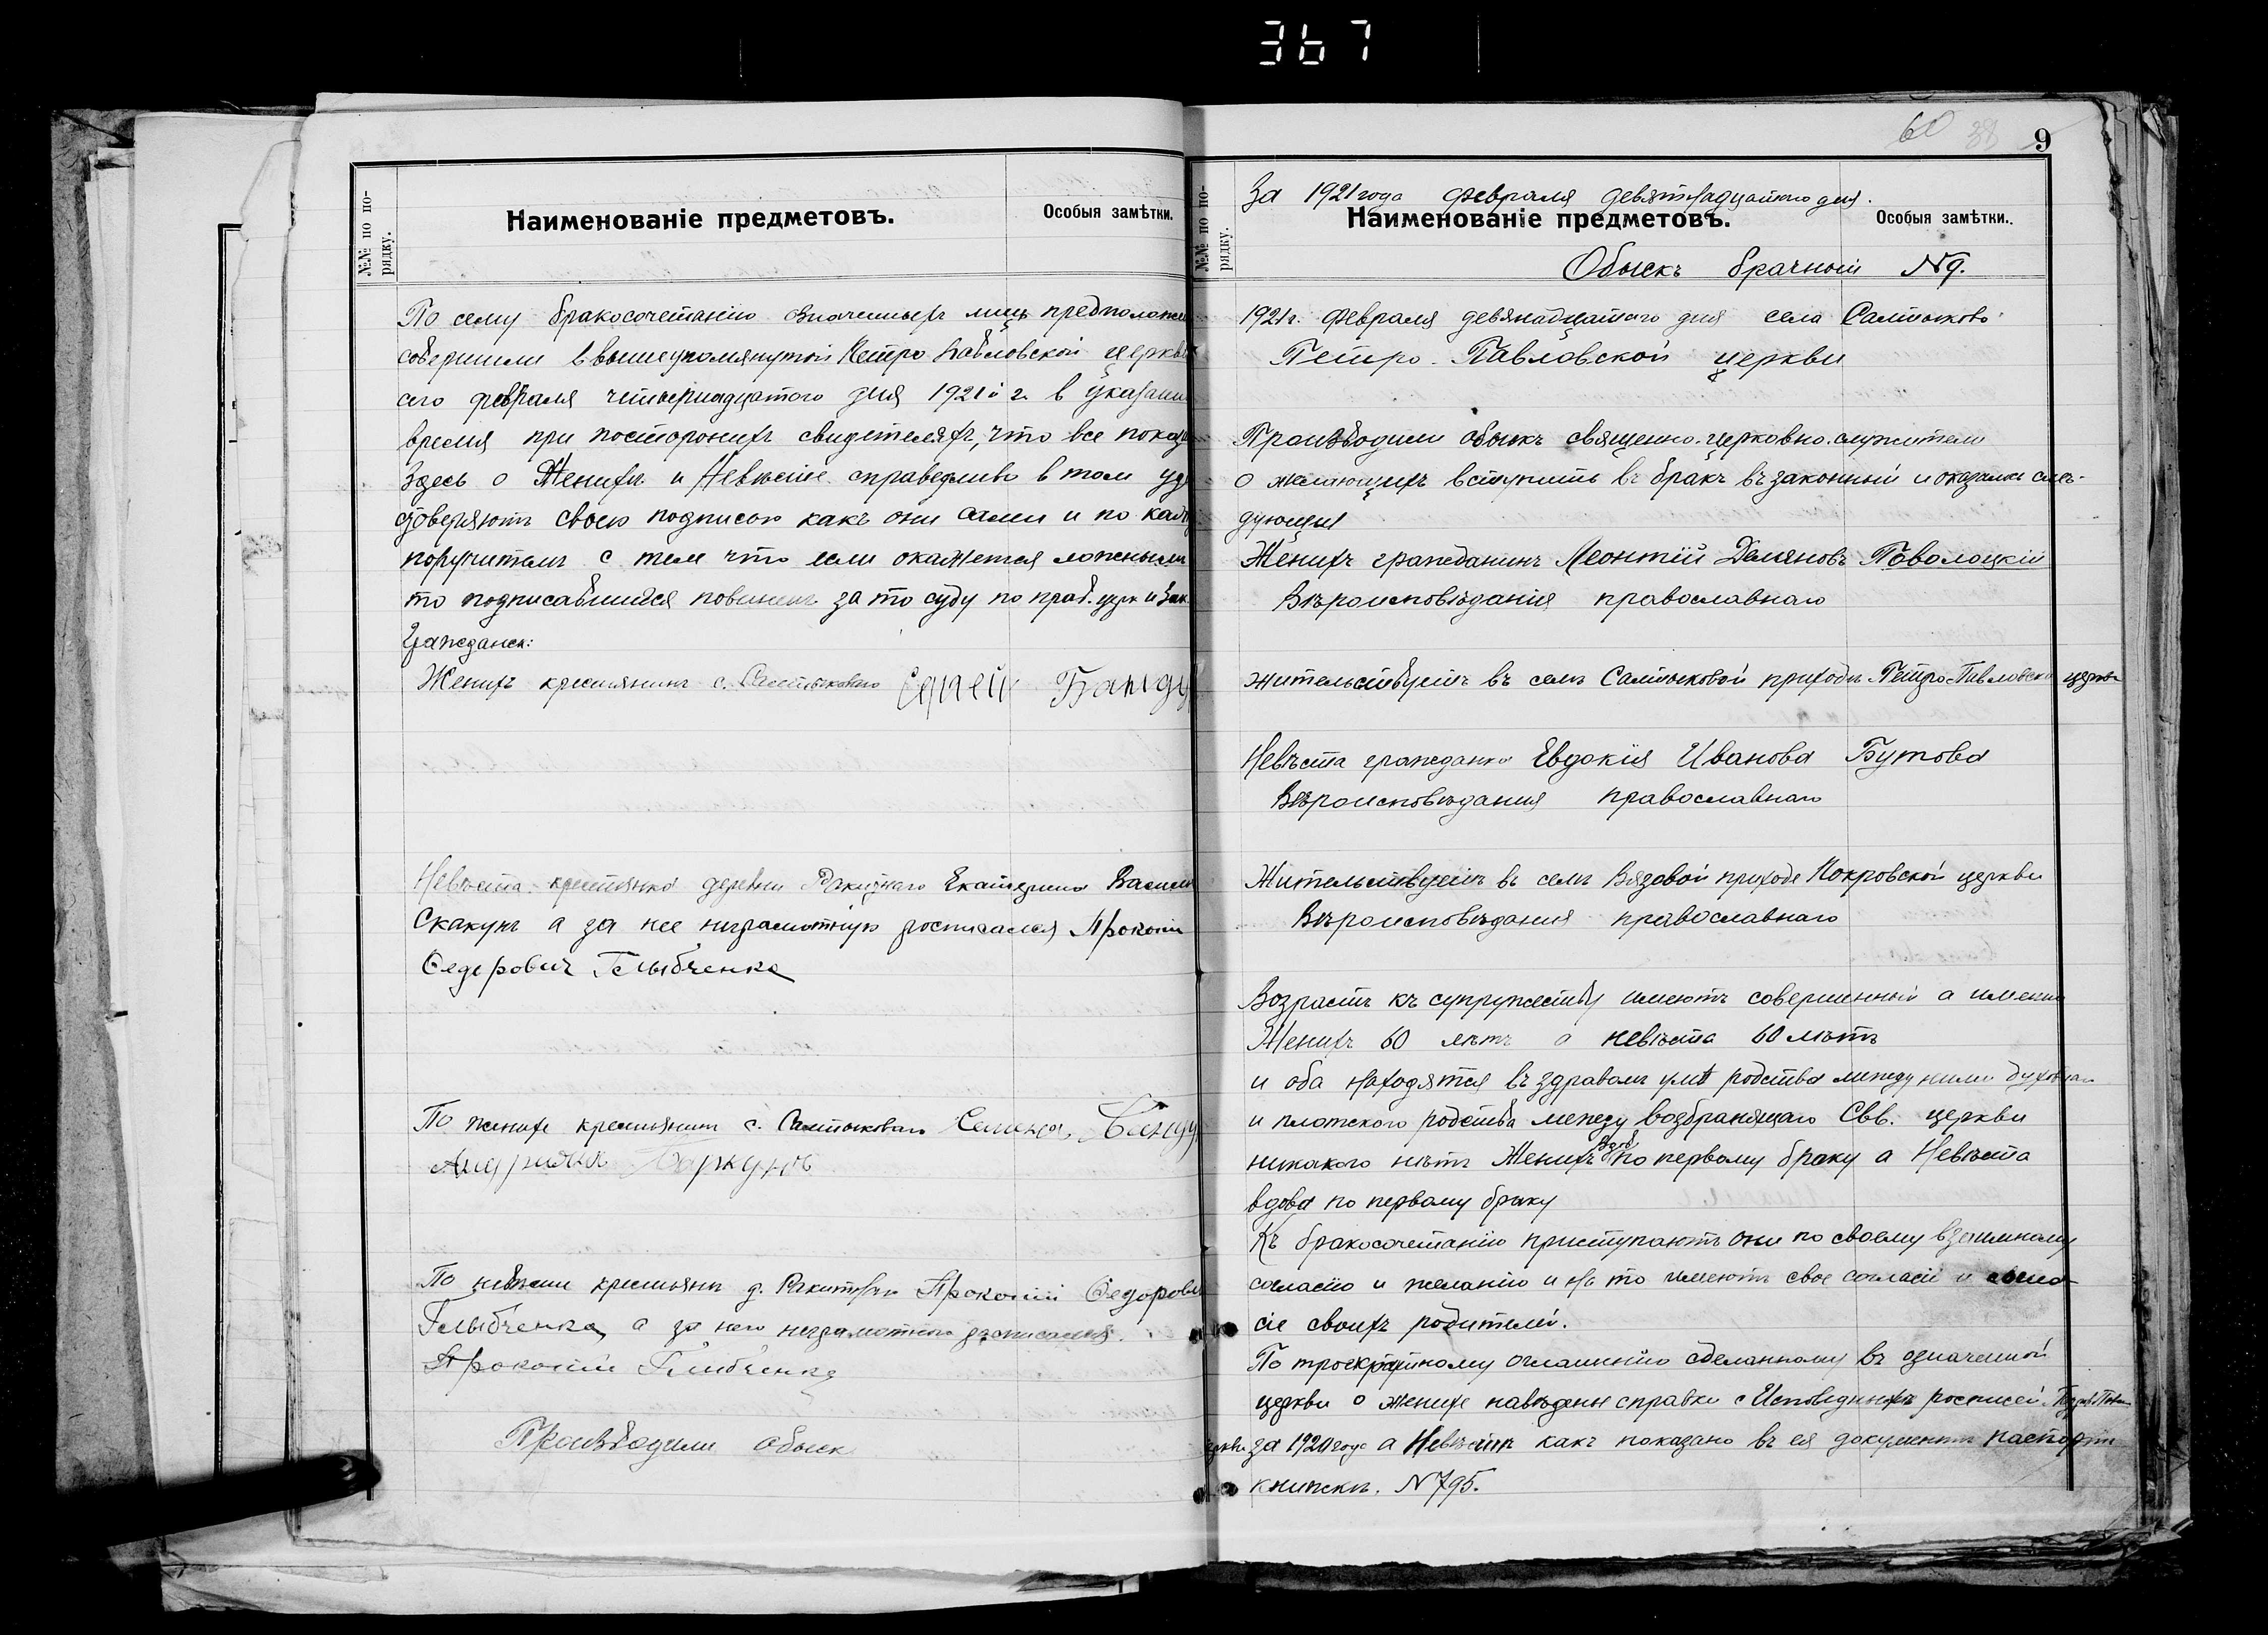 367
№№ по по-
рядку.
Наименованіе предметовъ.
Особыя замѣтки.
По сему бракосочетанію означенныхъ лицъ предположен
совершили в вышеупомянутой Петро Павловской церкви
сего февраля четырнадцатого дня 1921 г. в указан
время при постороннихъ свидетеляхъ, что все показа
здесь о Женихе и Невѣсте справедливо в том удо
стоверяютъ своею подписью какъ они сами и по кажд
поручители с тем что если окажется ложным
то подписавшийся повинен за то суду по прав. церк и Зак.
Гражданск:
Женихъ крестьянинъ с. Салтыковаго Сергей Бандур
Невѣста крестьянка деревни Ракитнаго Екатерина Васили
Скакунъ а за нее неграмотную росписался Прокопій
Федоровичъ Глыбченко
По женихе крестьянинъ с. Салтыковаго Семенъ Бандур
Андріянъ
По невѣсте крестьянъ д. Ракитнаго Прокопій Федорови
Глыбченко, а за него неграмотного росписался
Прокопій Глыбченко
Произвъодили обыск
60 38 9
За 1921 года февраля девятнадцатого дня.
№№ по по-
рядку.
Наименованіе предметовъ.
Особыя замѣтки.
Обыскъ брачный № 9.
1921 г. февраля девянадцатаго дня села Салтыково
Петро-Павловской церкви
Произвъодили обыкъ священно-церковно-служители
о желающихъ вступить въ бракъ въ законный и оказалось слѣ-
дующія
Женихъ гражданинъ Леонтій Демяновъ Поволоцкій
Вѣроисповѣданія православнаго
жительствуетъ въ селѣ Салтыковой приходѣ Петро-Павловской церкви
Невѣста гражданка Евдокія Иванова Бутова
Вѣроисповѣдания православнаго
Жительствуетъ въ селѣ Вязовой приходе Покровской церкви
Вѣроисповѣдания православнаго
Возрастъ къ супружеству имеютъ совершенный а именно
Женихъ 60 лѣтъ а невѣста 60 лѣтъ
и оба находятся въ здравомъ умѣ родства между ними духовнаго
и плотского родства между возбраняющаго Свв. церкви
никакого нѣтъ Женихъ вдов по первому браку а Невѣста
вдова по первому браку
Къ бракосочетанію приступаютъ они по своему взаимному
согласію и желанію и на то имеютъ свое согласіе и
сіе своихъ родителей.
По троекратному оглашенію сделанному въ означенной
церкви о женихе наведены справки с Исповедныхъ росписей
церкви за 1920 года а Невѣстѣ какъ показано въ ея документѣ паспортн
книжкѣ. № 795.